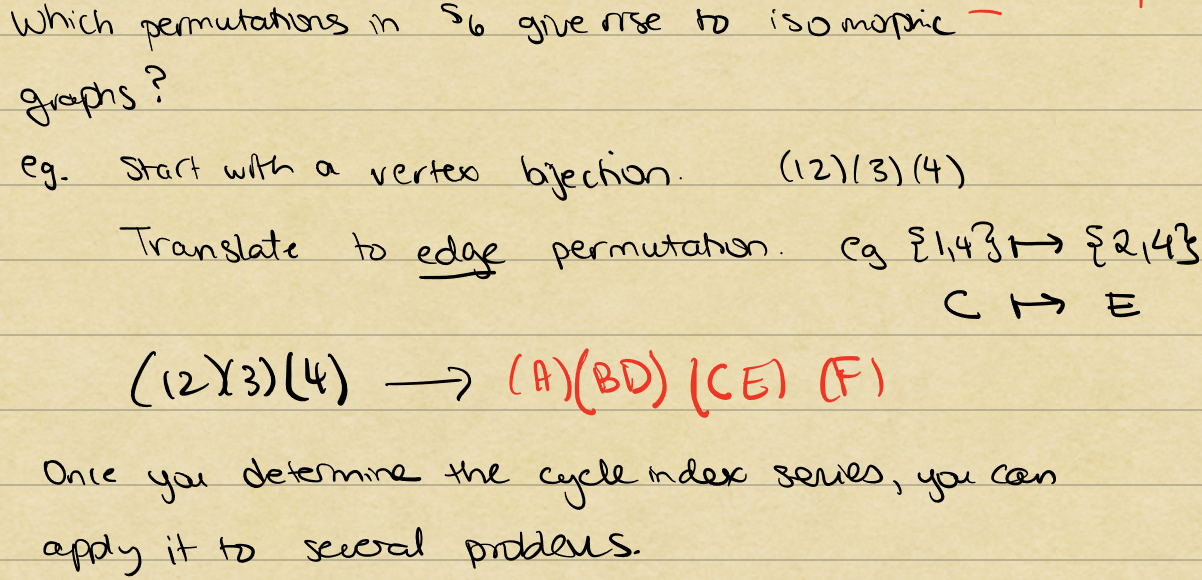 Which permutations in S6 give rise to isomorphic
graphs?
eg. Start with a vertex bijection. (12)(3)(4)
Translate to edge permutation. eg {1,4} ↦ {2,4}
C ↦ E
(12)(3)(4) → (A)(BD)(CE)(F)
Once you determine the cycle index series, you can
apply it to several problems.